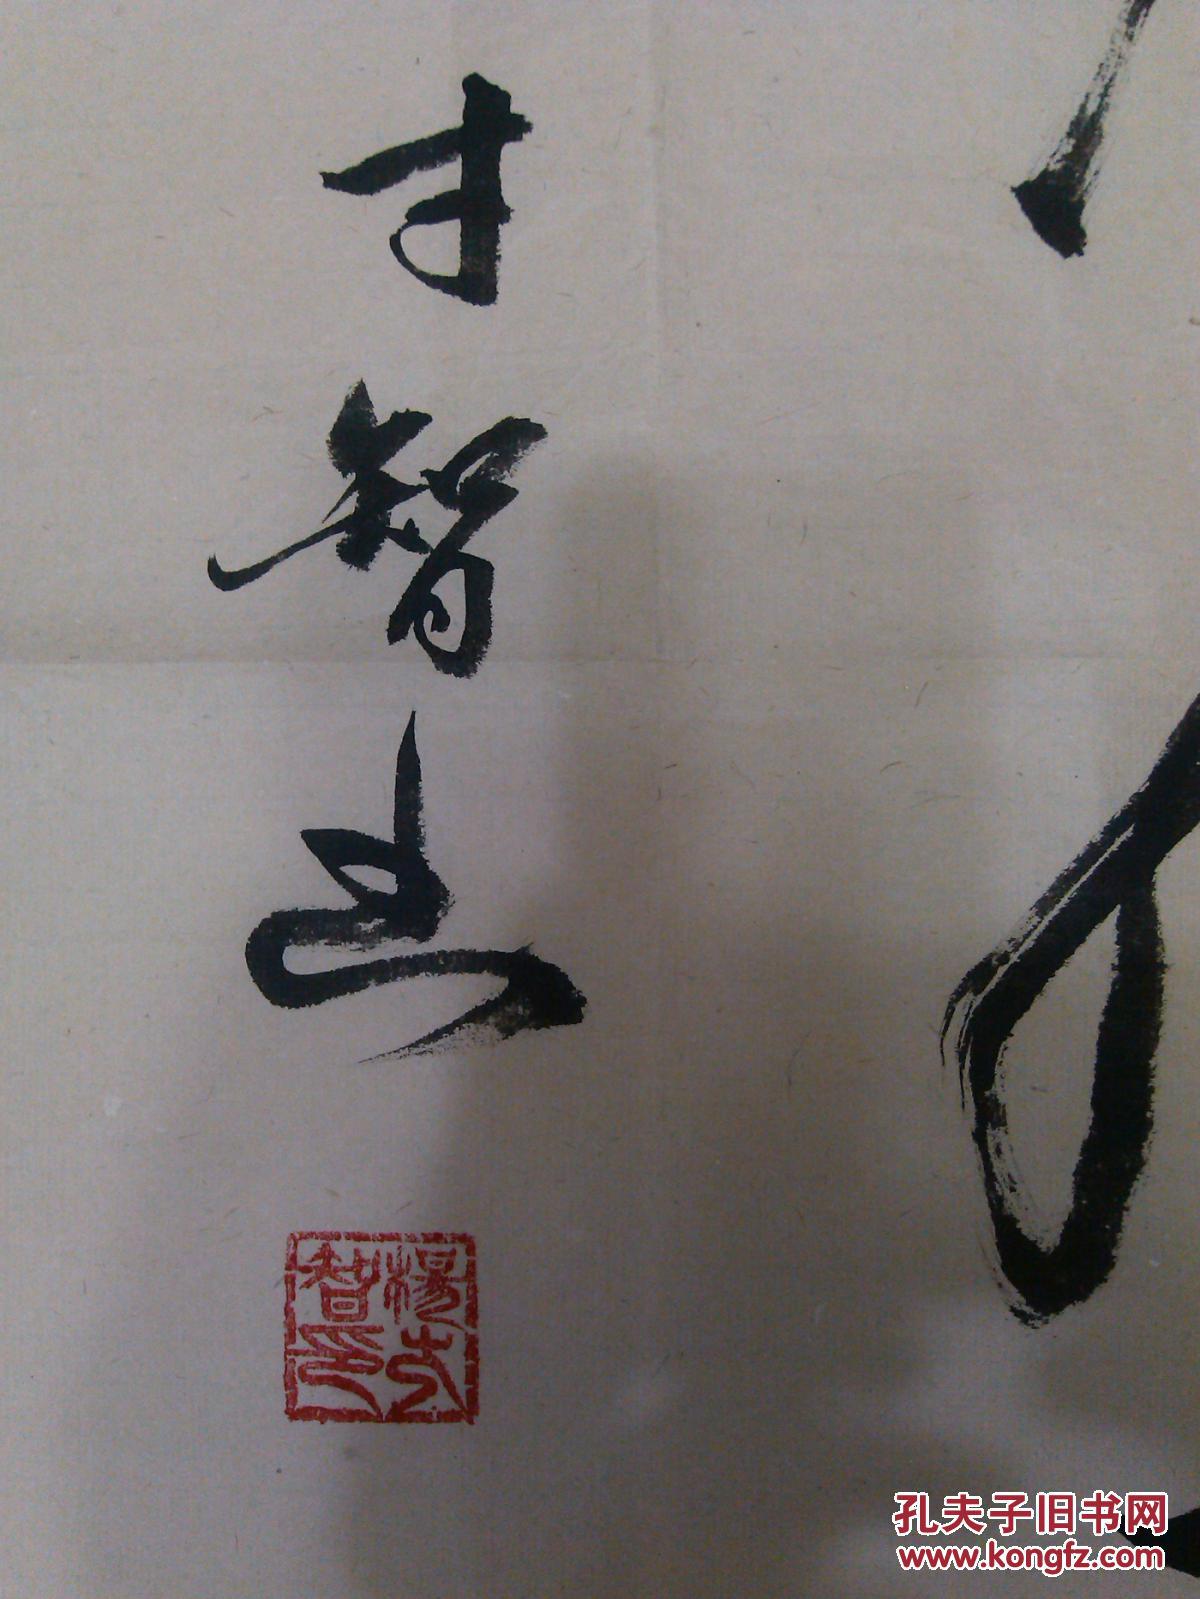 才智书
楊才
智印
孔夫子旧书网
www.kongfz.com